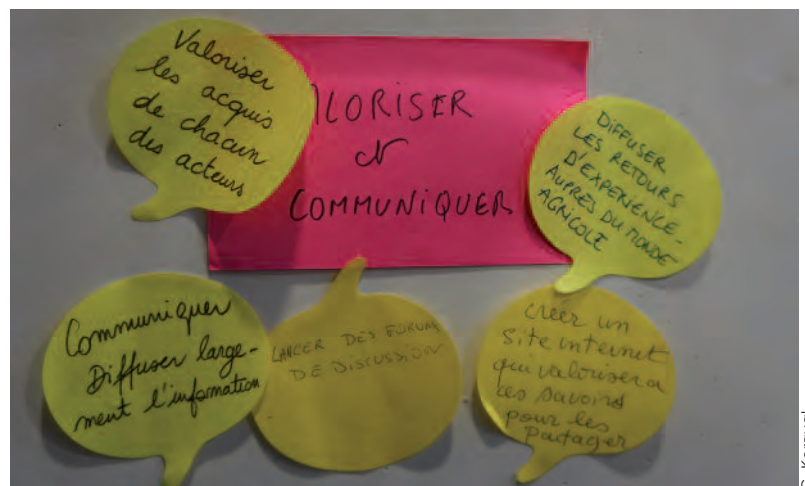 Valoriser
les acquis
de chacun
des acteurs
ALORISER
&
COMMUNIQUER
DIFFUSER
LES RETOURS
D'EXPERIENCE
AUPRÈS DU MONDE
AGRICOLE
Communiquer
Diffuser large-
ment l'information
LANCER DES FORUMS
DE DISCUSSION
Créer un
site internet
qui valorisera
ces savoirs
pour les
partager